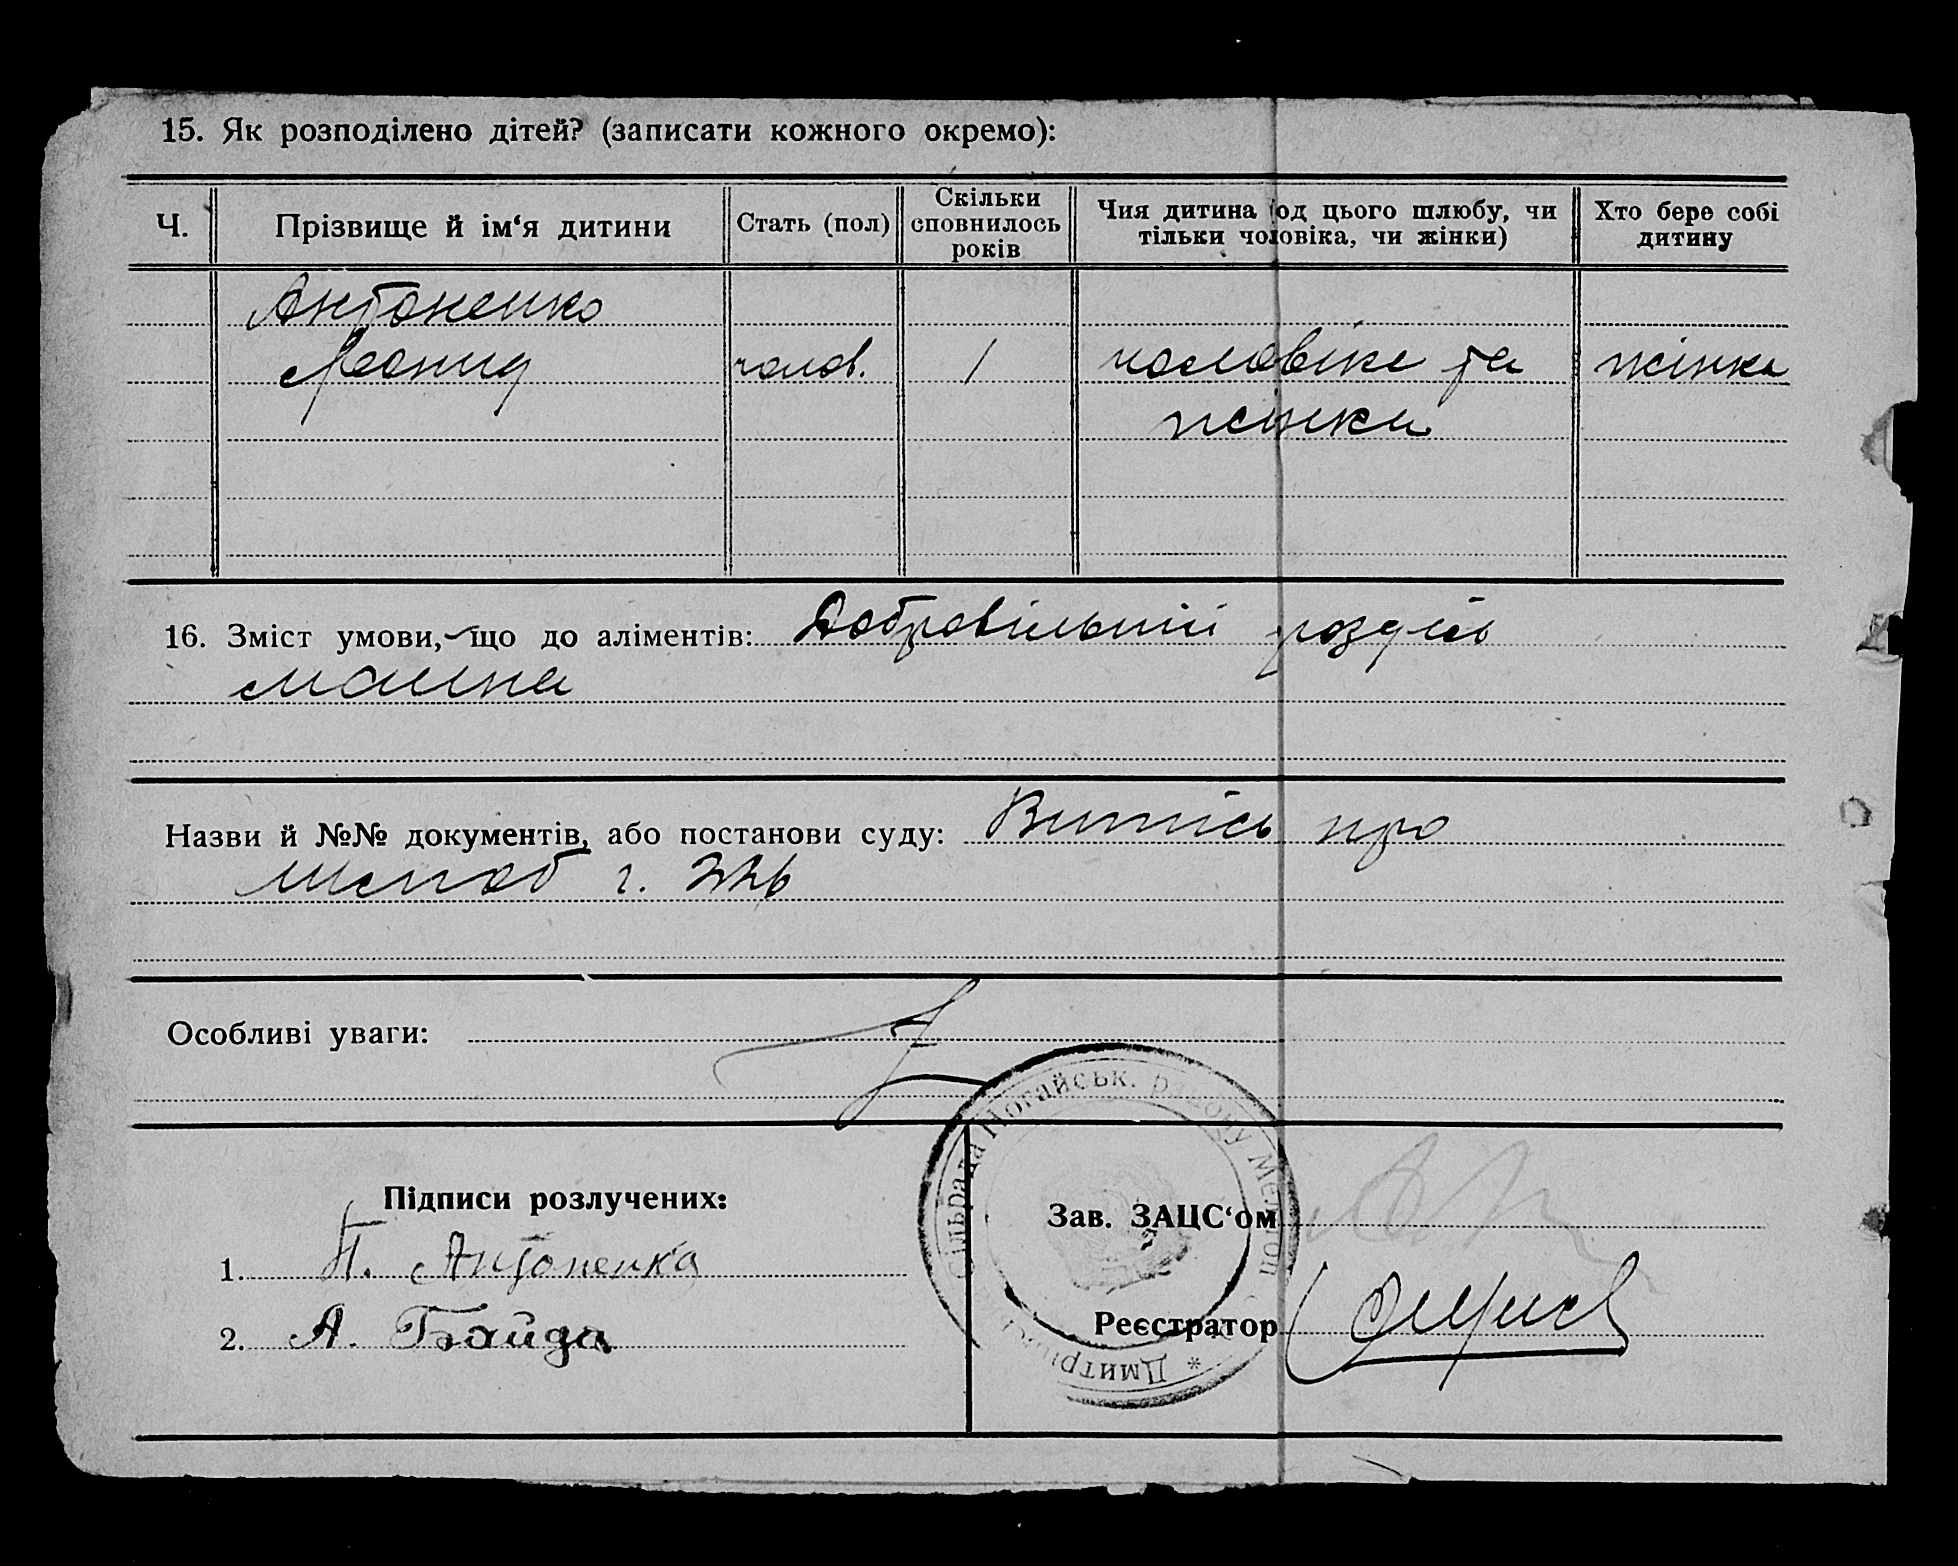 15. Як розподілено дітей? (записати кожного окремо):
Ч.
Прізвище й ім‘я дитини
Стать (пол)
Скільки
сповнилось
років
Чия дитина (од цього шлюбу, чи
тільки чоловіка, чи жінки)
Хто бере собі
дитину
Антоненко
Леонид
чолов.
1
чоловіка та
жінки
жінка
16. Зміст умови, що до аліментів: Добровільний розділ
маєтка
Назви й №№ документів, або постанови суду: Витпісь про
шлюб
Особливі уваги:
Підписи розлучених:
1. П. Антоненко
2. А. Байда
Зав. ЗАЦС‘ом
Реєстратор
Сільрада Ногайськ. району Мелітоп
* Дмитрівськ